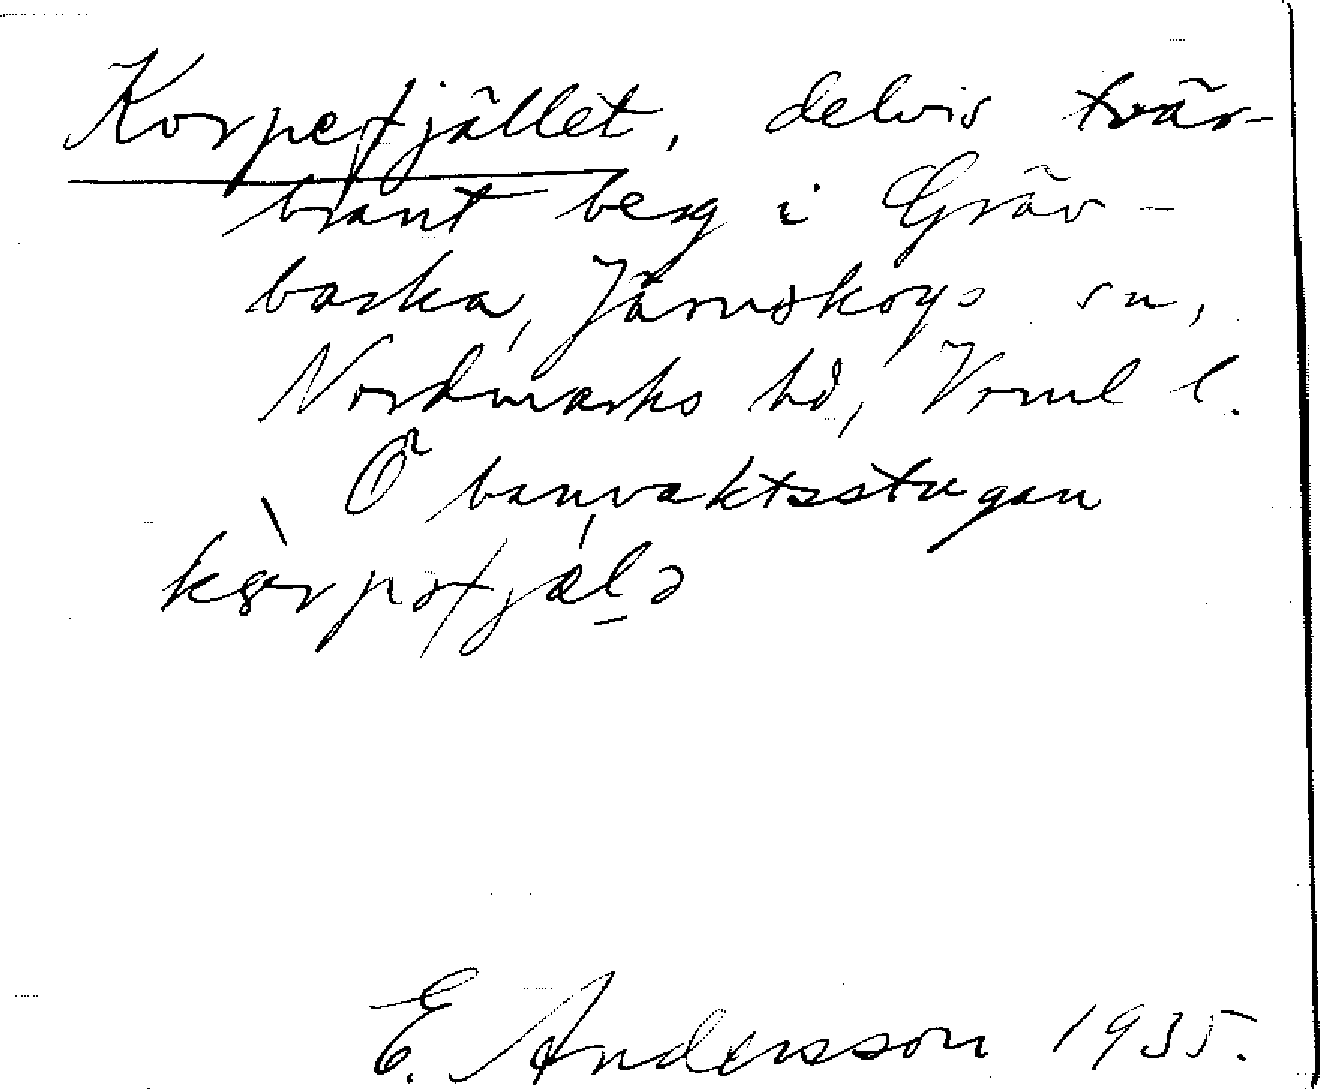 Korpefjället, delvis tvär-
brant berg i Gräv-
backa, Järnskogs sn,
Nordmarks hd, Vrml l.
Ö banvaktsstugan
E. Andersson 1935.